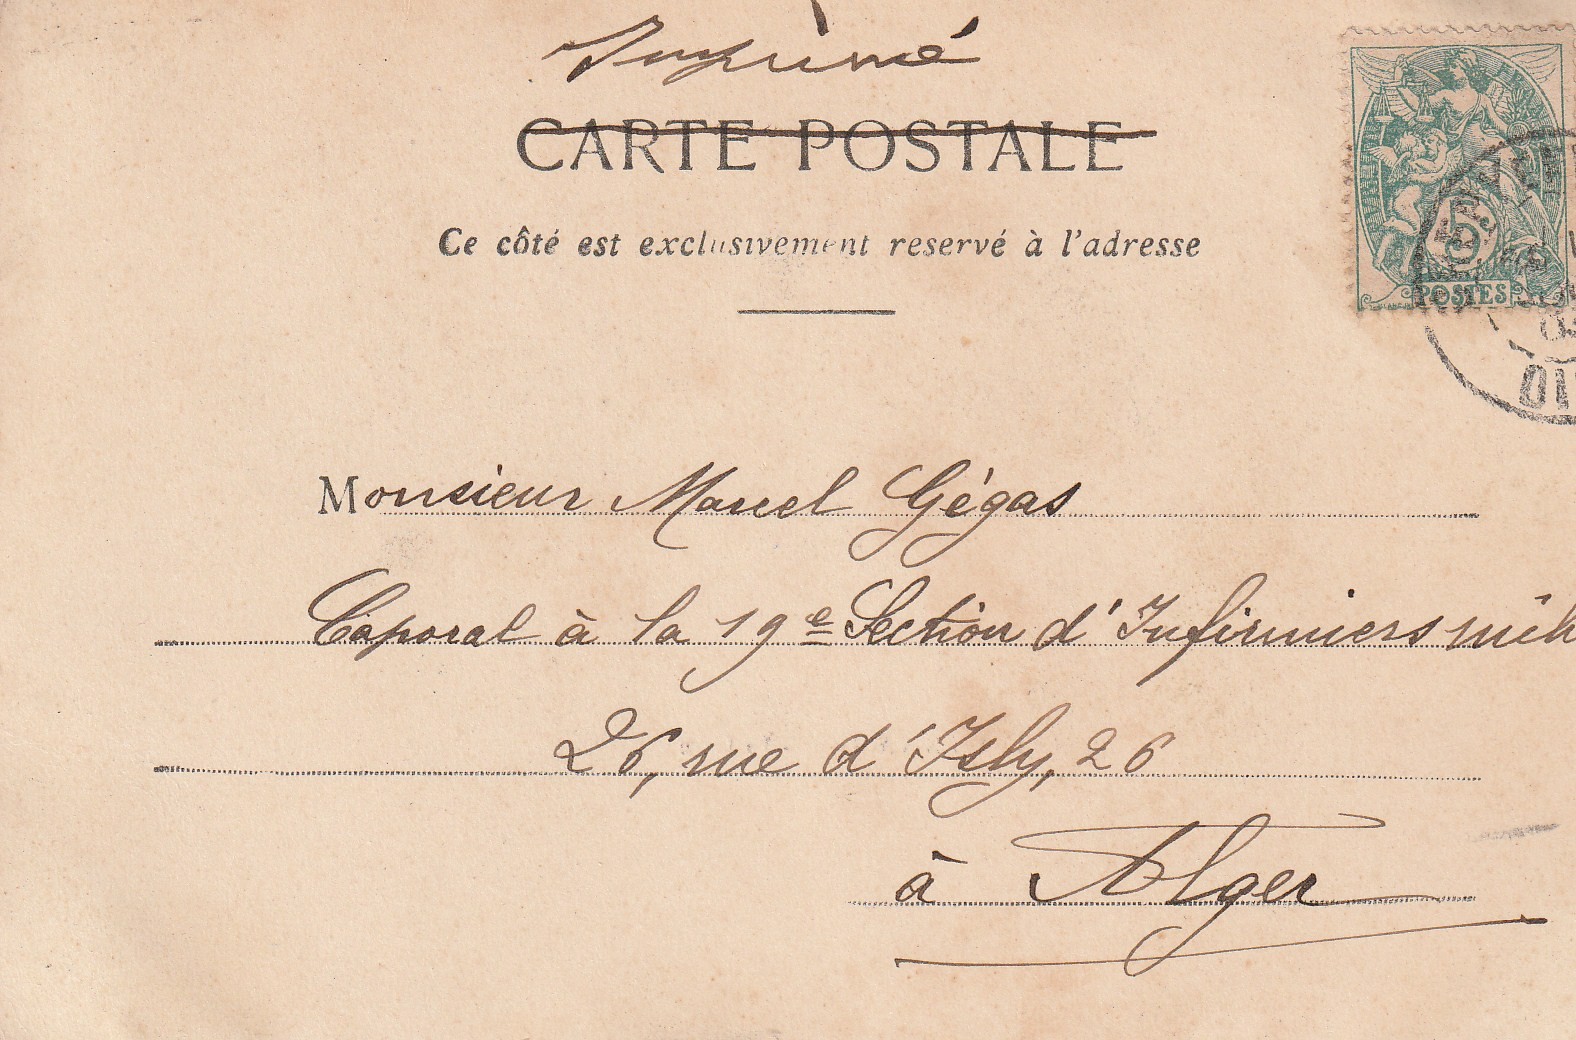 Imprimé
CARTE POSTALE
Ce côté est exclusivement reservé à l'adresse
5
POSTES
Monsieur Marcel Gégas
Caporal à la 19e Section d'Infirmiers
26, rue d'Isly, 26
à Alger